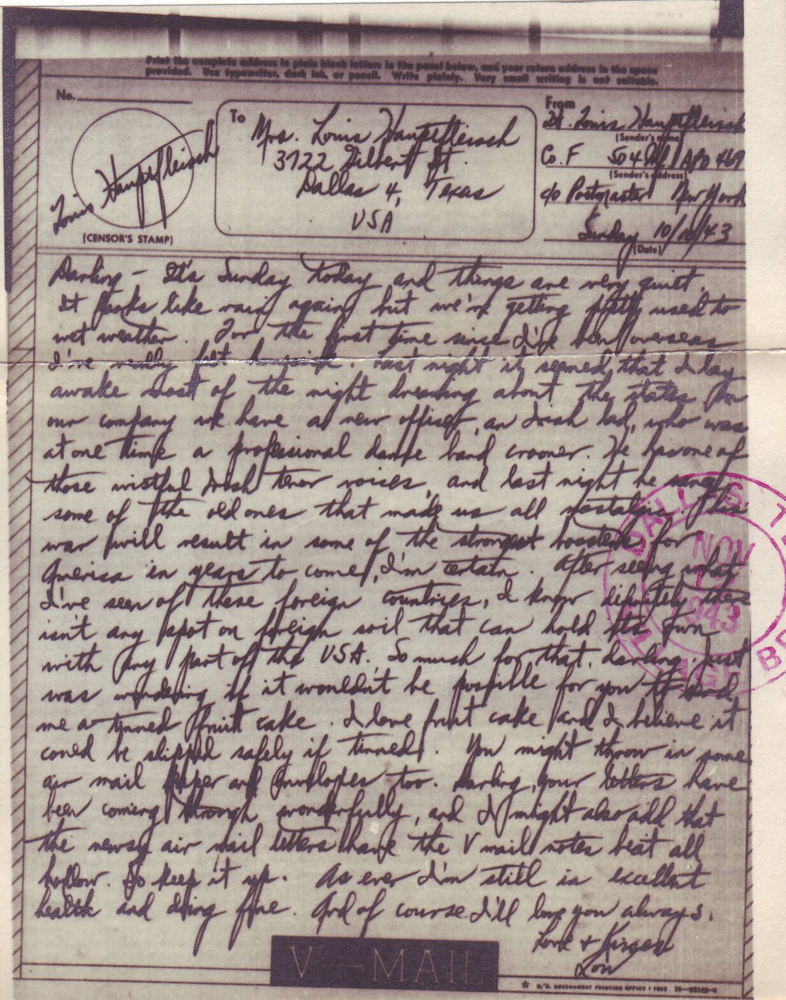 Print the complete address in plain block letters in the panel below, and your return address in the space
provided. Use typewriter, dark ink, or pencil. Write plainly. Very small writing is not suitable.
No.
To
From
Mrs. Louis Haupfleisch
3722 Gilbert St.
Dallas 4, Texas
USA
Lt. Louis Haupfleisch
(Sender's name)
Co. F 504 APO 469
(Sender's address)
c/o Postmaster New York
Sunday 10/10/43
(Date)
Louis Haupfleisch
(CENSOR'S STAMP)
Darling – It's Sunday today and things are very quiet.
It looks like rain again but we're getting pretty used to
wet weather. For the first time since I've been overseas
I've really felt homesick. Last night it seemed that I lay
awake most of the night dreaming about the states. In
our company we have a new officer, an Irish lad, who was
at one time a professional dance band crooner. He has one of
those wistful Irish tenor voices, and last night he sang
some of the old ones that made us all nostalgic. This
war will result in some of the strongest boosters for
America in years to come, I'm certain. After seeing what
I've seen of these foreign countries, I know definitely there
isn't any spot on foreign soil that can hold its own
with any part of the USA. So much for that, darling. Just
was wondering if it wouldn't be possible for you to send
me a tinned fruit cake. I love fruit cake and I believe it
could be shipped safely if tinned. You might throw in some
air mail paper and envelopes too. Darling, your letters have
been coming through wonderfully, and I might also add that
the newsy air mail letters have the V mail notes beat all
hollow. So keep it up. As ever I'm still in excellent
health and doing fine. And of course I'll love you always.
Love & Kisses
Lou
DALLAS, TE
NOV
1943
V-MAIL
U.S. GOVERNMENT PRINTING OFFICE : 1943